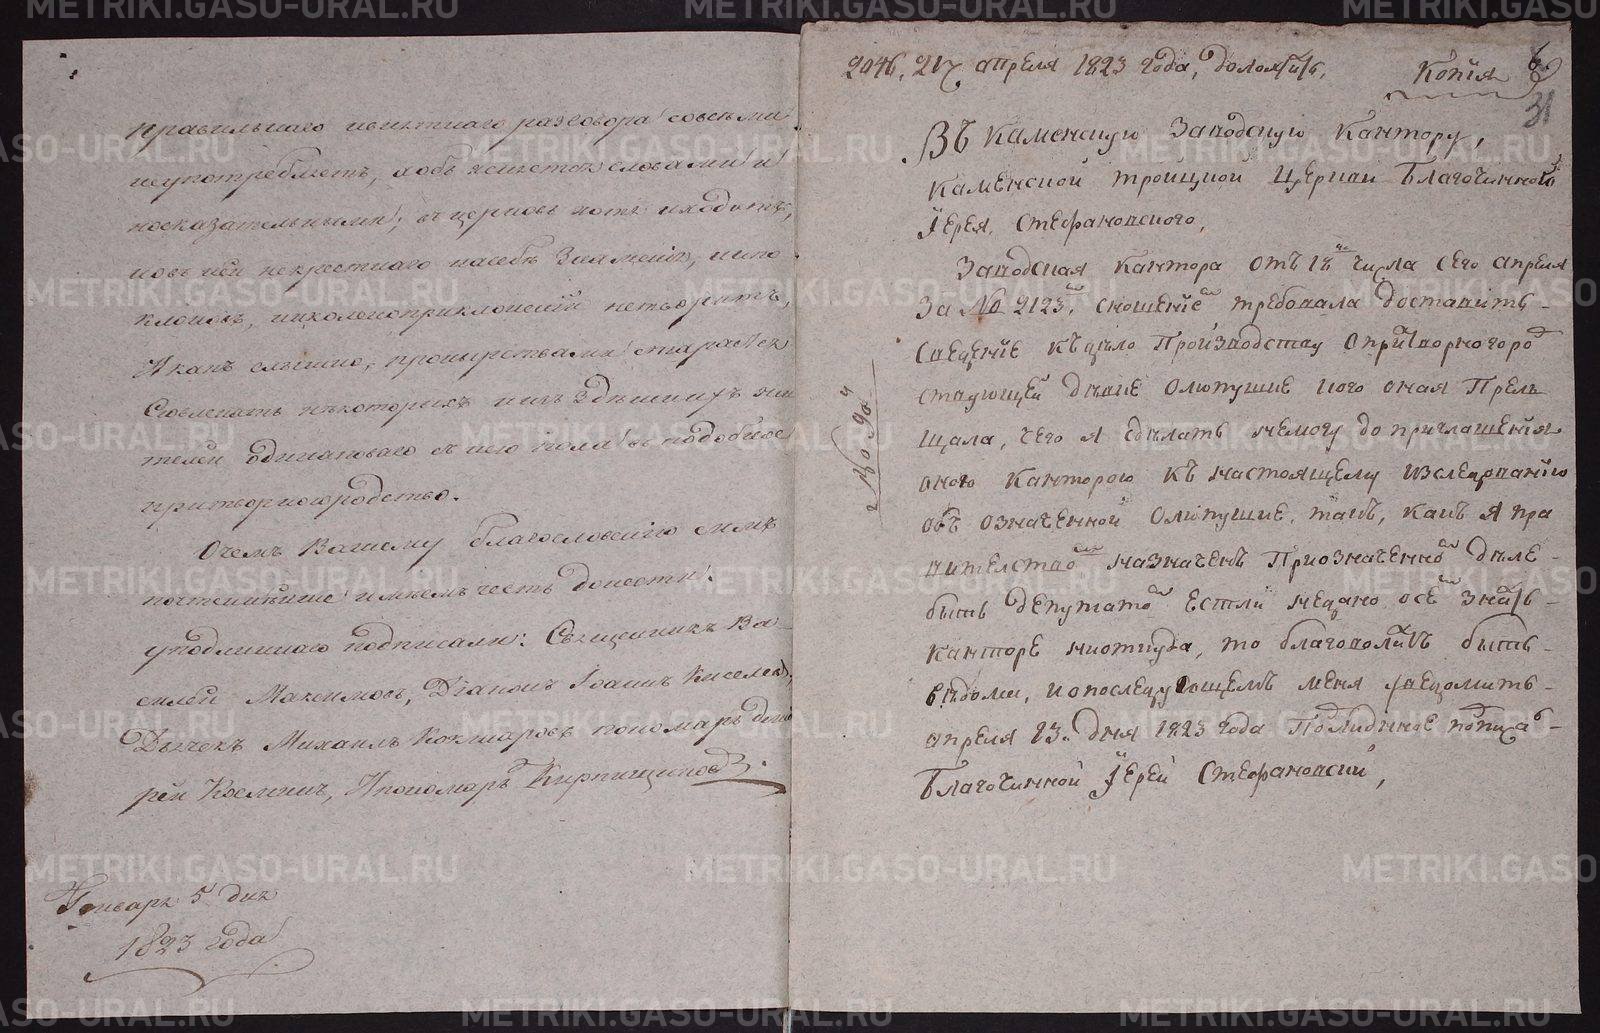 правильнаго и внятнаго разговора совсѣми
неупотребляетъ, а объясняется словами и
носказательными; въ церковь хотя и ходитъ,
но въ ней некрестнаго насебѣ знаменія, ни по
клоновъ, ни колѣноприклоненій нетворитъ,
И какъ слышно, пронырствами старается
Совлекать нѣкоторыхъ изъ здѣшнихъ жи
телей одинаковаго съ нею пола въ подобное
притворноюродство.
Очемъ Вашему благословенію симъ
почтеннѣйше имѣемъ честь донести.
уподлиннаго подписали: Священникъ Ва
силей Максимовъ, Діаконъ Іоаннъ Киселевъ,
Дьячекъ Михаилъ Кокшаровъ пономарь
Косминъ, И пономарь Кирпищиковъ.
Генваря 5 дня
1823 года
2046, 217 апреля 1823 года, доложить,
Копія
6
31
Въ Каменскую Заводскую Кантору,
Каменской троицкой церкви Благочиннаго
Іерея Стефановского,
Заводская кантора отъ 18го числа сего апреля
За № 2123м сношеніем требовала доставить
сведение къ делу Производству о притворноюрод
ствующей девке Олюпушке кого оная Прель
щала, чего я сделать немогу до приглашения
оного Канторою къ настоящему изследованию
объ означенной Олюпушке, такъ, какъ я пра
вителством назначенъ При означенном деле
быть депутатом естли недано о сем знать
канторе ниоткуда, то благоволитъ быть
ведоми, и опоследующемъ меня уведомить
апреля 23. дня 1823 года Подлинное подписал
Благочинной Іерей Стефановский,